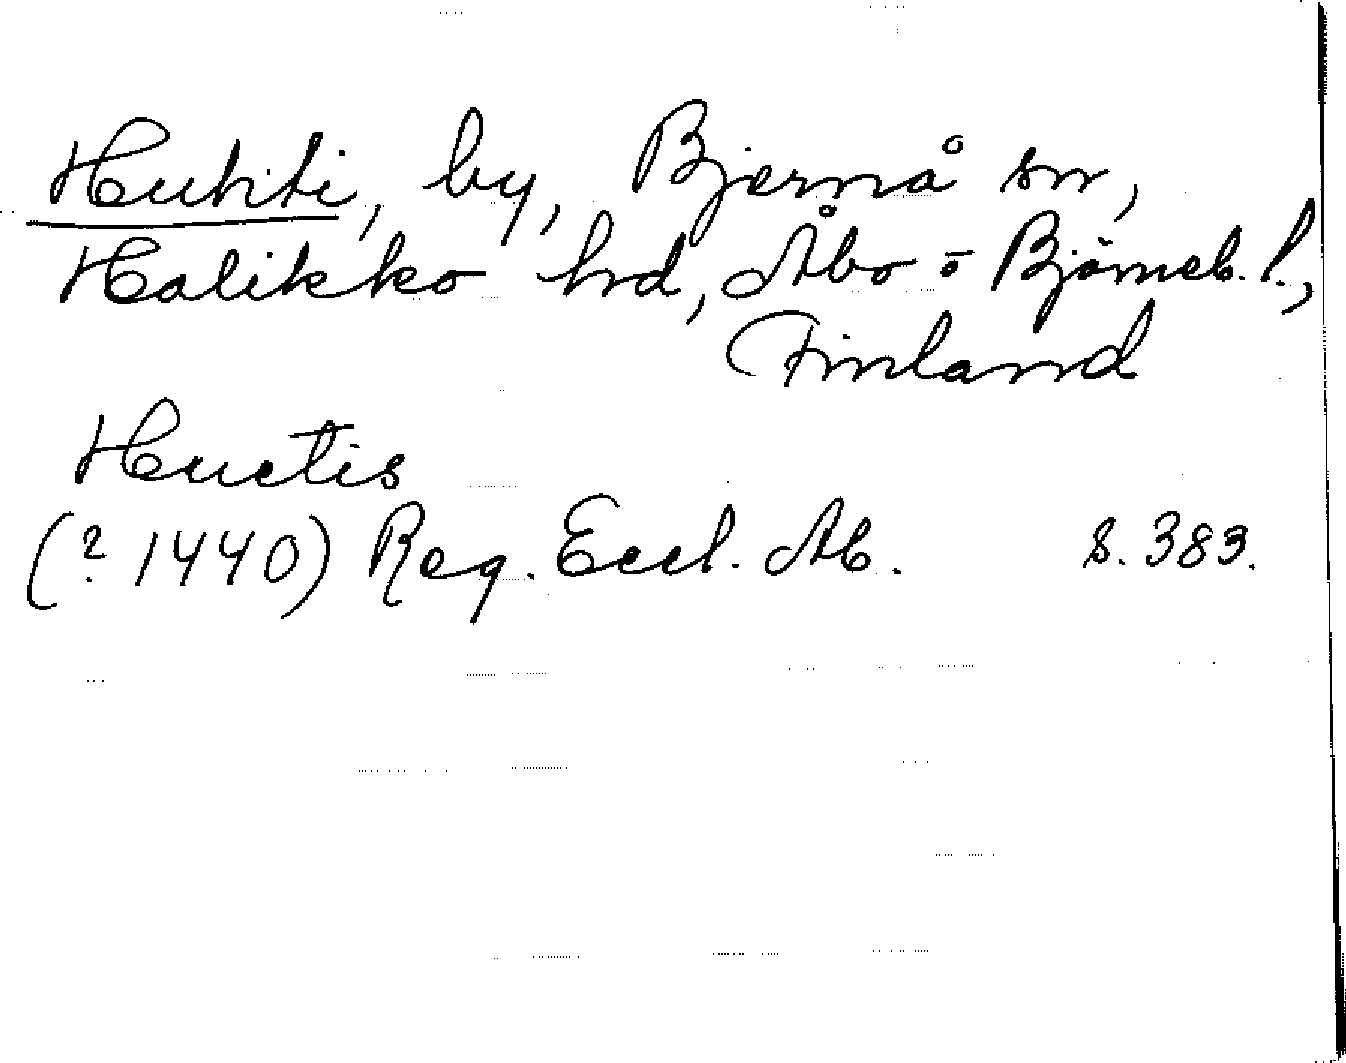 Huhti, by, Bjernå sn,
Halikko hrd, Åbo o Björneb. l.,
Finland
Huctis
(? 1440) Reg. Eccl. Ab. s. 383.